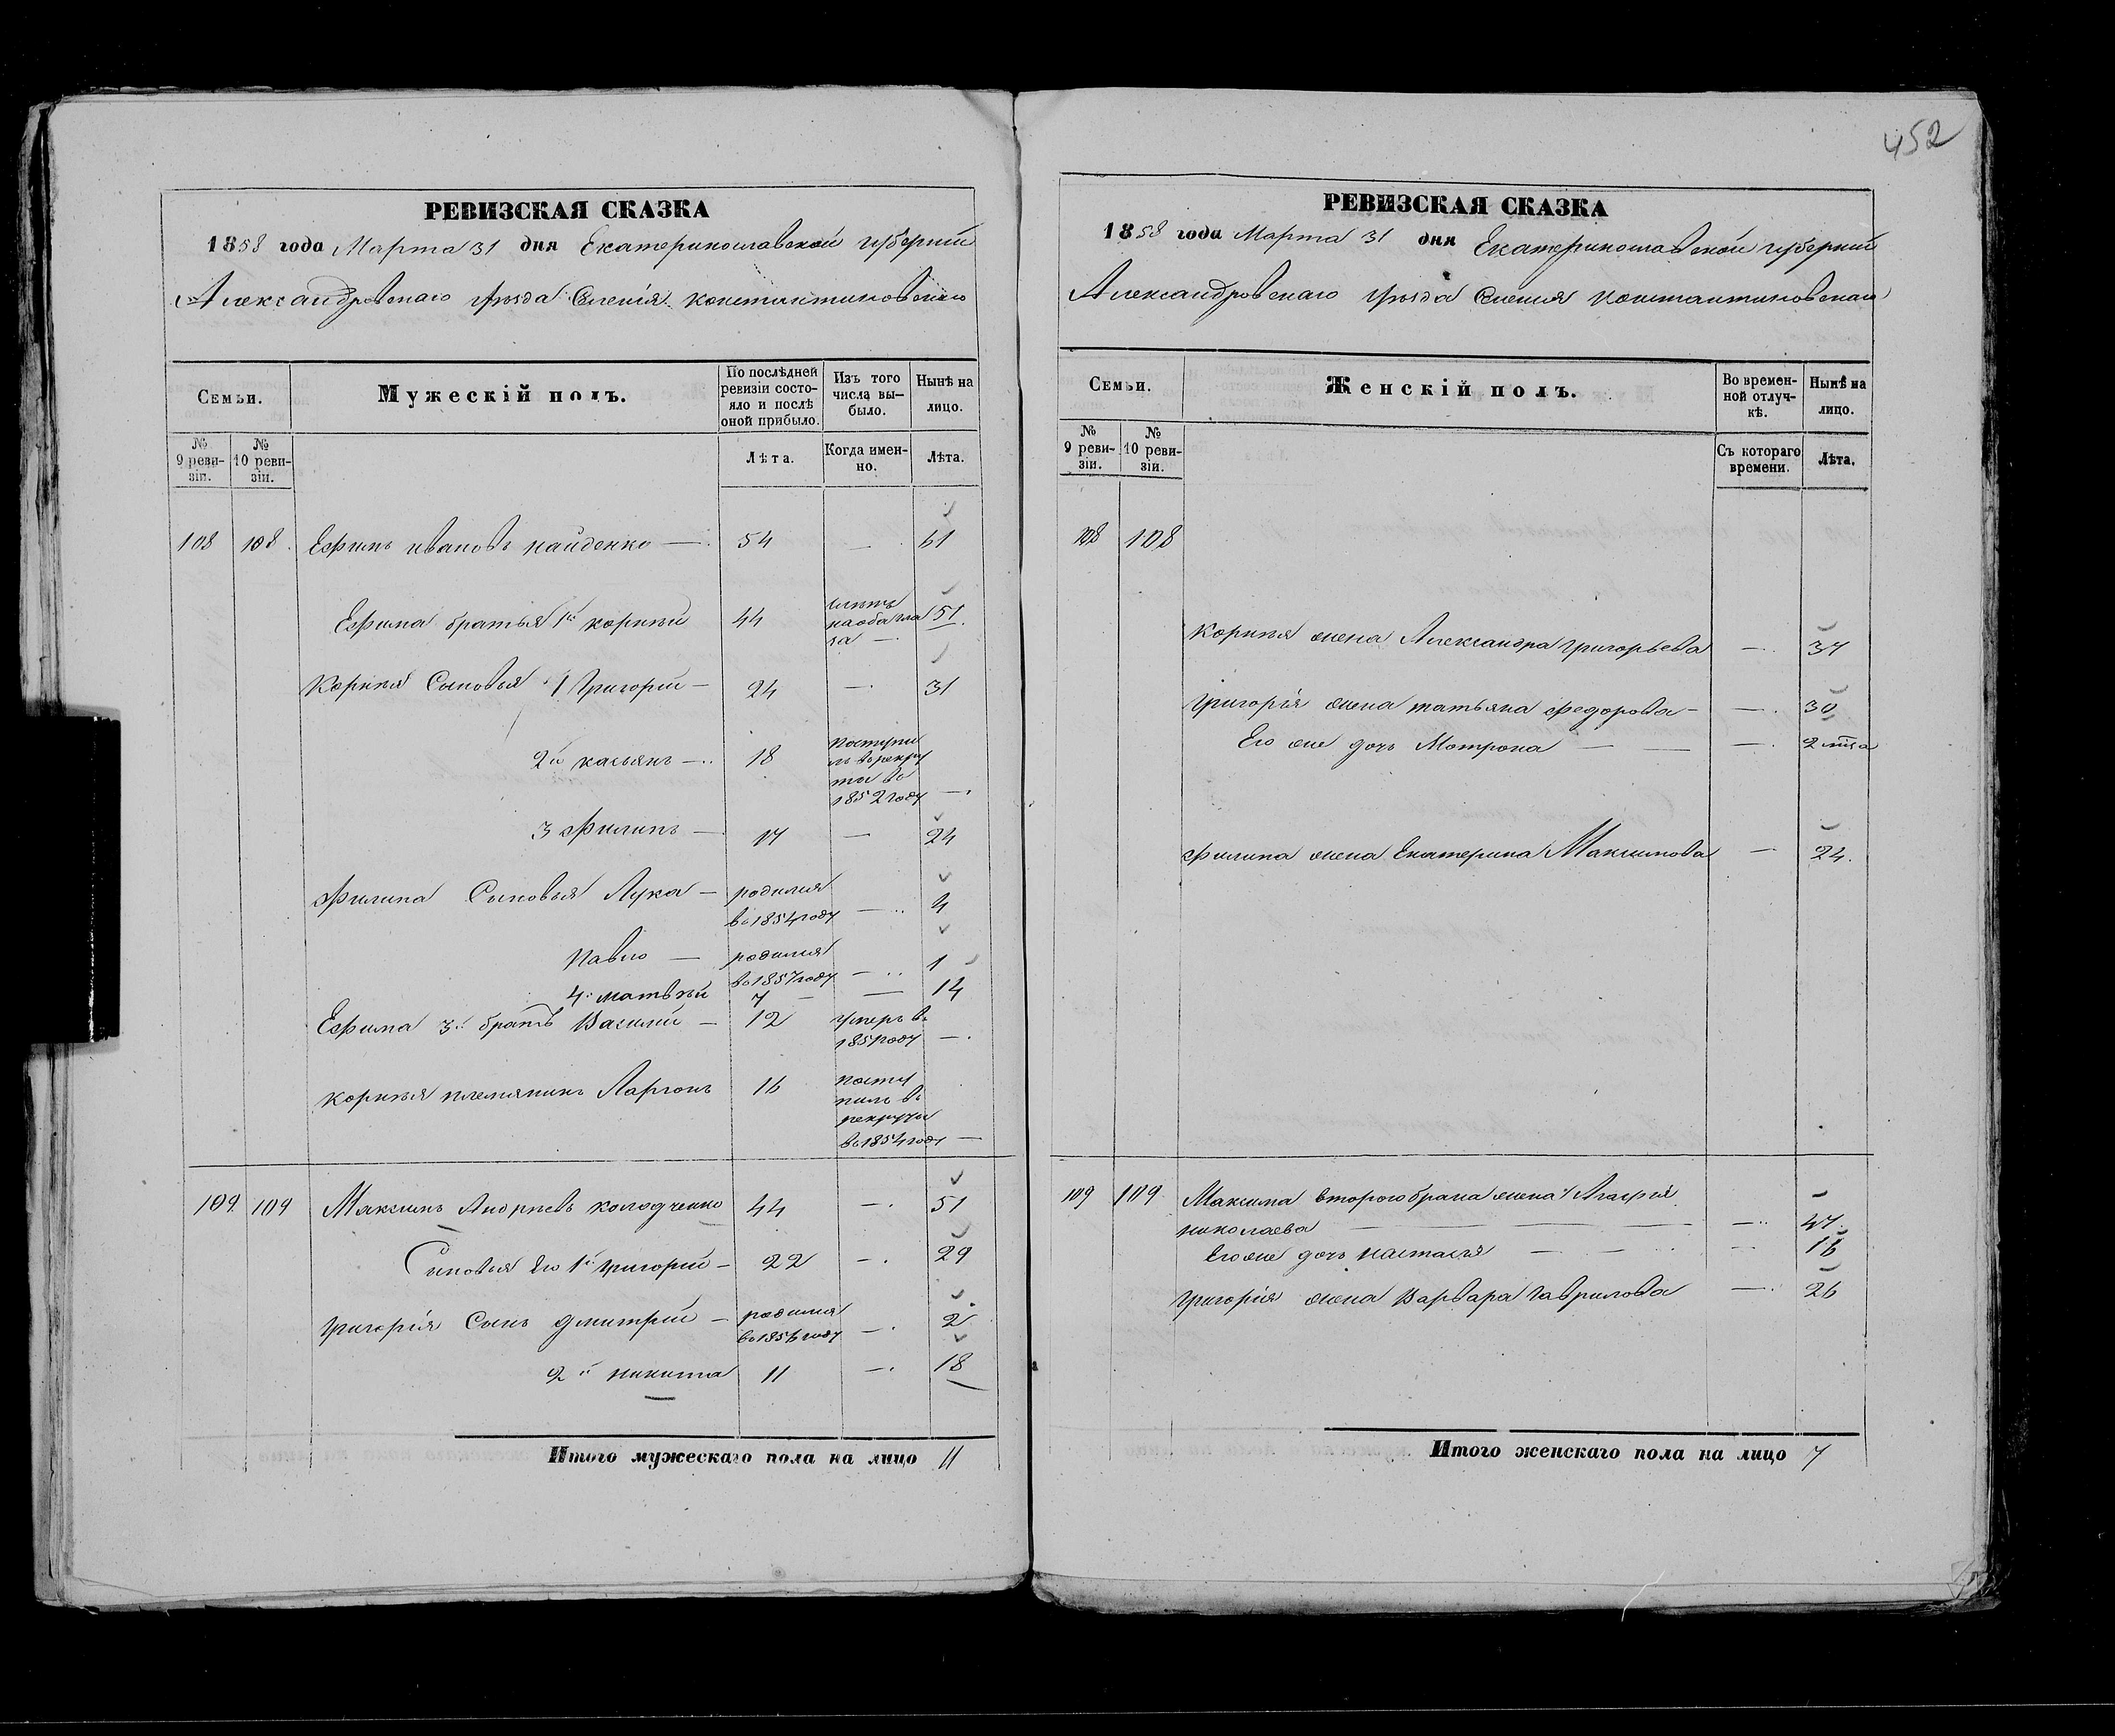 452
РЕВИЗСКАЯ СКАЗКА
1858 года Марта 31 дня Екатеринославской губерніи
Александровскаго уѣзда Селенія Константиновскаго
Семьи.
Мужескій полъ.
По послѣдней ревизіи состояло и послѣ оной прибыло.
Изъ того числа выбыло.
Нынѣ на лицо.
№ 9 ревизіи.
№ 10 ревизіи.
Лѣта.
Когда именно.
Лѣта.
108 108. Ефимъ Ивановъ Найденко — 54 — 61
Ефима братья 1й Корнѣй 44 слѣпъ на оба глаза — 51.
Корнѣя Сыновья 1 Григорій — 24 — 31
2й Касьянъ — 18 поступилъ в рекруты въ 1852 году —
3 Филипъ — 17 — 24
Филипа Сыновья Лука — родился въ 1854 году — 4
Павло — родился въ 1857 году — 1
4й Матвѣй 7 — 14
Ефима 3й братъ Василій — 12 умеръ въ 1851 году —
Корнѣя племяникъ Ларіонъ 16 поступилъ въ рекруты въ 1854 году —
109 109 Максимъ Андреевъ Колодченко 44 — 51
Сыновья Его 1й Григорій — 22 — 29
Григорія Сынъ Дмитрій — родился въ 1856 году — 2
2й Никита 11 — 18
Итого мужескаго пола на лицо 11
РЕВИЗСКАЯ СКАЗКА
1858 года Марта 31 дня Екатеринославской губерніи
Александровскаго уѣзда Селенія Константиновскаго
Семьи.
Женскій полъ.
Во временной отлучкѣ.
Нынѣ на лицо.
№ 9 ревизіи.
№ 10 ревизіи.
Съ котораго времени.
Лѣта.
108 108
Корнѣя жена Александра Григорьева — 37
Григорія жена Татьяна Федорова — 30
Его же дочь Мотрона — 2 мѣса
Филипа жена Екатерина Максимова — 24.
109 109 Максима второго брака жена Агафія
Николаева — 47.
Его же дочь Настасія — 16
Григорія жена Варвара Гаврилова — 26
Итого женскаго пола на лицо 7